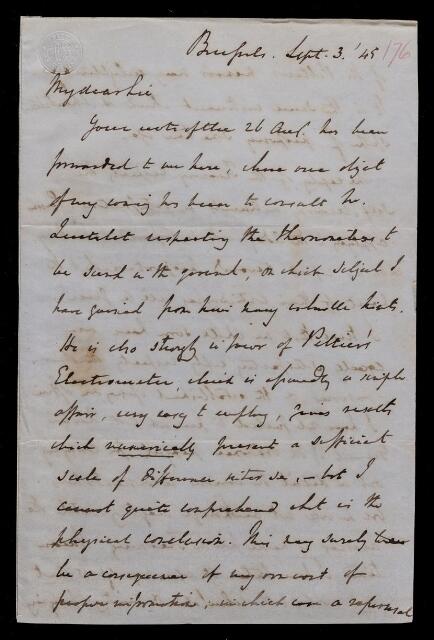 Brussels. Sept. 3. '45 176
My dear Sir
Your note of the 26 Aug. has been
forwarded to me here, where one object
of my coming has been to consult M.
Quetelet respecting the thermometers to
be sunk in the ground, on which subject I
have gained from him many valuable hints.
He is also strongly in favor of Peltier's
Electrometer, which is apparently a simple
affair, very easy to employ, & gives results
which numerically present a sufficient
scale of difference inter se, — but I
cannot quite comprehend what is the
physical conclusion. This may surely
be a consequence of my own want of
proper information, in which case a reperusal